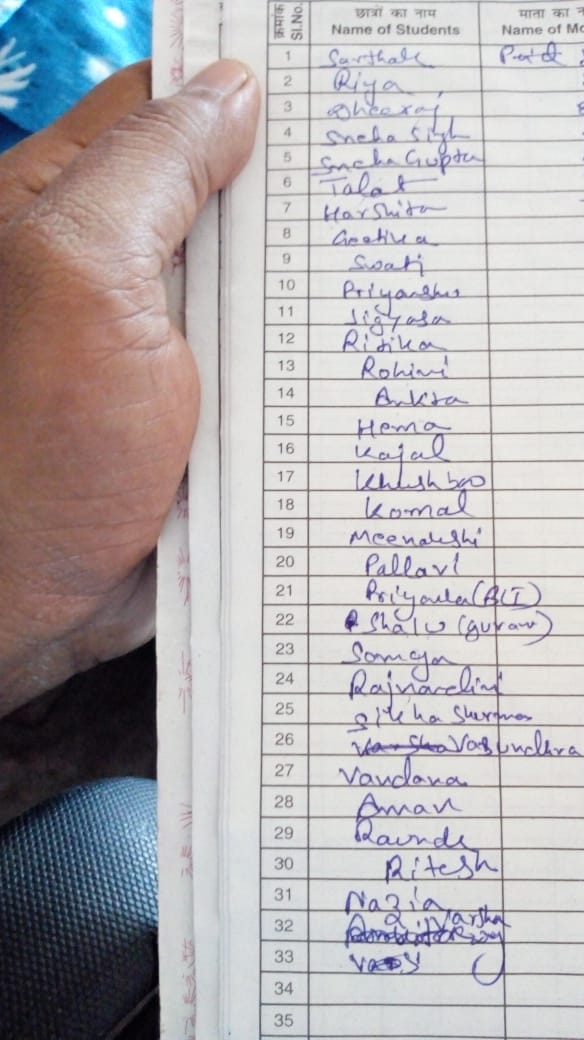 क्रमांक छात्रों का नाम माता का न
Sl.No. Name of Students Name of Mo
1 Sarthak
2 Riya
3 Dheeraj
4 Sneha Singh
5 Sneha Gupta
6 Talat
7 Harshita
8 Geetika
9 Swati
10 Priyanshu
11 Jigyasa
12 Ritika
13 Rohini
14 Ankita
15 Hema
16 Kajal
17 Khushboo
18 Komal
19 Meenakshi
20 Pallavi
21 Priyanka
22 Shalu
23 Somya
24 Rajnandini
25 Sharma
26 Vasundhra
27 Vandana
28 Aman
29
30 Ritesh
31 Nazia
32 Varsha
33
34
35